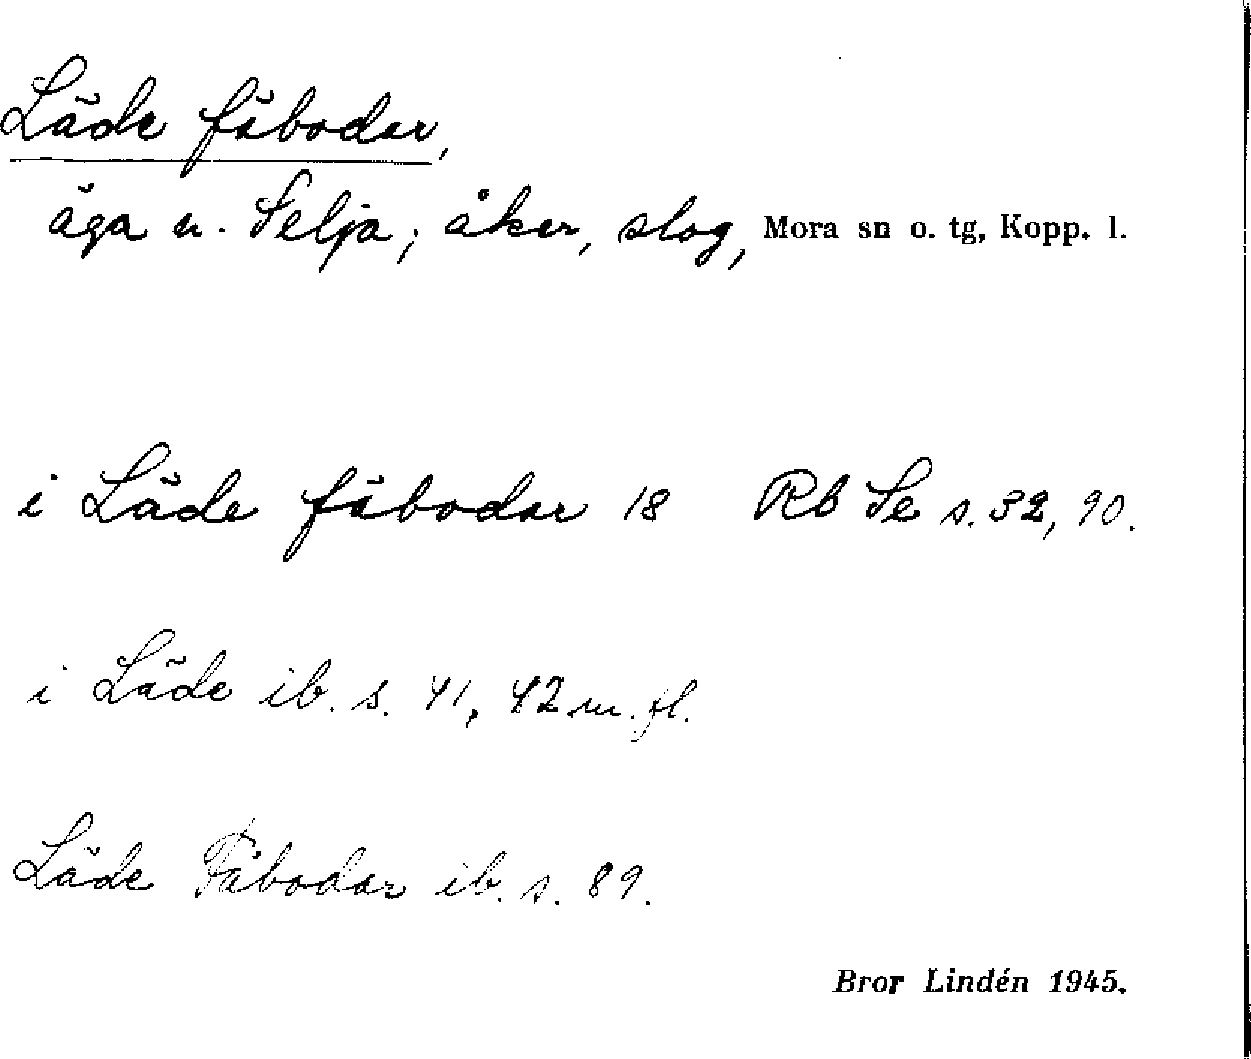 Läde fäbodar,
äga u. Selja; åker, slog, Mora sn o. tg, Kopp. l.
i Läde fäbodar 18 Rb Se s. 32, 90.
i Läde ib. s. 41, 42 m. fl.
Läde Fäbodar ib. s. 89.
Bror Lindén 1945.